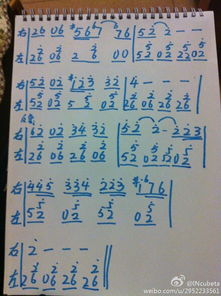 右 26 06 #567 76 52 2 - -
左 26 06 2 6 00 52 02 52 02
右 52 02 #123 32 4 - - -
左 52 02 5 5 02 26 06 26 26
右 62 02 34 32 52 2 - 223
左 26 06 26 06 52 02 52 02
右 445 334 223 176
左 52 02 52 02
右 2 - - -
左 26 06 26 26
@INcubetz
weibo.com/u/2952233561